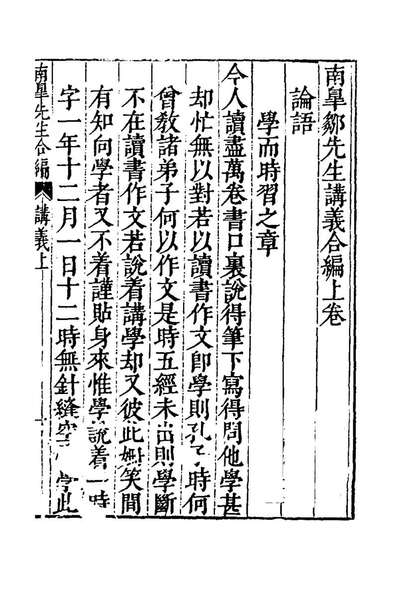 南臯鄒先生講義合編上卷
論語
學而時習之章
今人讀盡萬卷書口裏說得筆下寫得問他學甚
却忙無以對若以讀書作文卽學則孔子時何
曾敎諸弟子何以作文是時五經未出則學斷
不在讀書作文若說着講學却又彼此嬲笑間
有知向學者又不着謹貼身來惟學說着一時
字一年十二月一日十二時無針縫空 學此
南臯先生合編 講義上